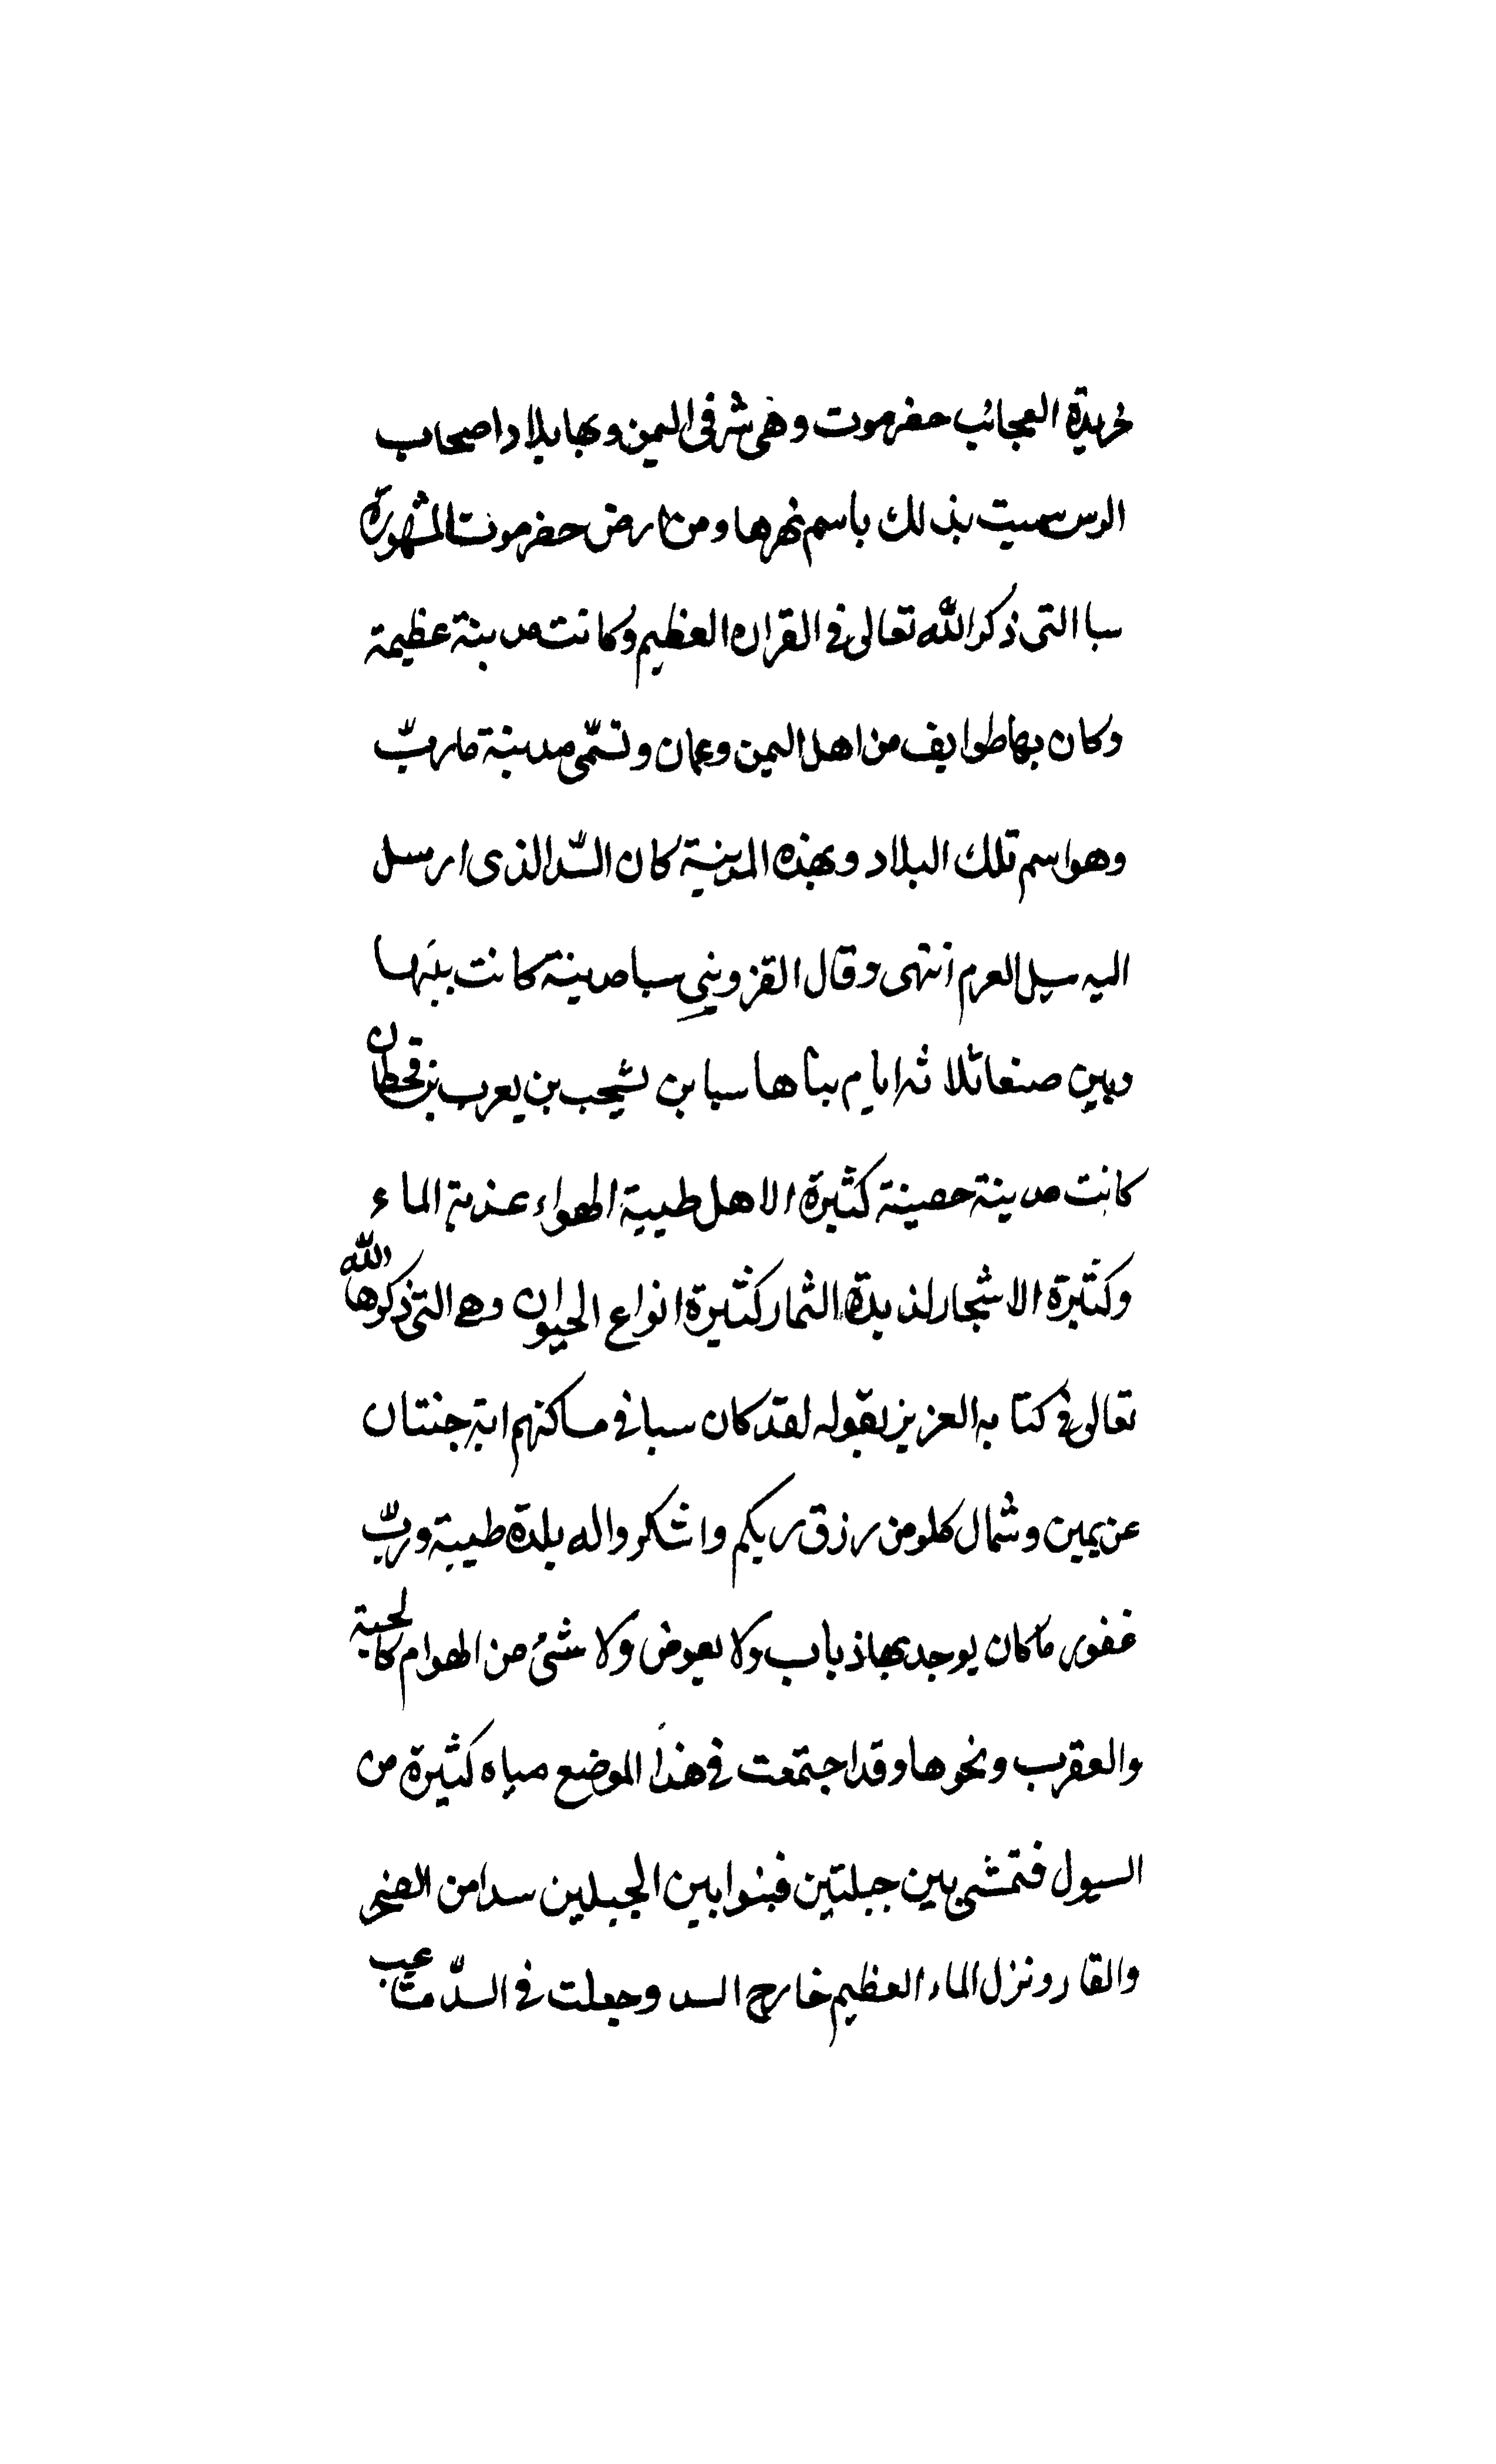 خريدة العجائب حضرموت وهى شرقى اليمن وبها بلاد اصحاب
الرس سميت بذلك باسم نهرها ومن ارض حضرموت المشهورة
سبا التى ذكر الله تعالى فى القران العظيم وكانت مدينة عظيمة
وكان بها طوايف من اهل اليمن وعمان وتسمّى مدينة مارب
وهو اسم تلك البلاد وبهذه المدينة كان السّد الذى ارسل
اليه سيل العرم انتهى وقال القزوينى سبا مدينة كانت بينها
وبين صنعا ثلاثه ايام بناها سبا بن يشجب بن يعرب بن قحطان
كانت مدينة حصينة كثيرة الاهل طيبة الهواء عذبة الماء
وكثيرة الاشجار لذيذة الثمار كثيرة انواع الحيوان وهى التى ذكرها الله
تعالى فى كتابه العزيز بقوله لقد كان سبا فى مساكنهم اية جنتان
عن يمين وشمال كلو من رزق ربكم واشكروا له بلدة طيبة وربّ
غفور ما كان يوجد بها ذباب ولا بعوض ولا شئ من الهوام كالحية
والعقرب ونحوها وقد اجتمعت فى هذا الموضع مياه كثيرة من
السيول فتمشى بين جبلتين فبنوا بين الجبلين سدا من الصخر
والقار ونزل الماء العظيم خارج السد وجعلت فى السدّ مثاعب